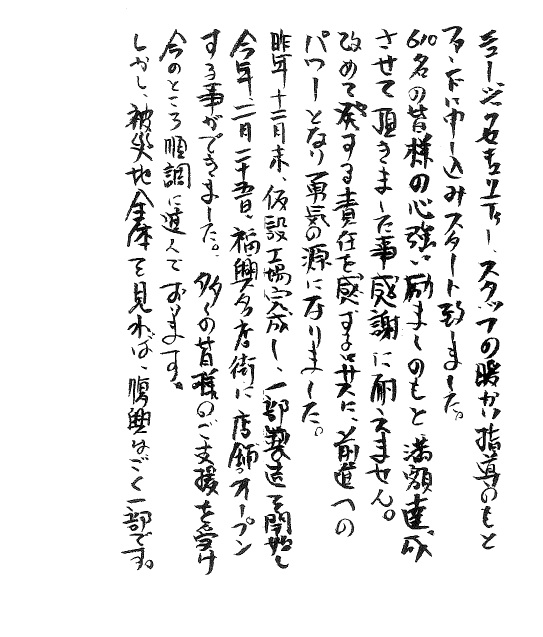 ミュージックセキュリティー、スタッフの暖かい指導のもと
ファンドに申し込みスタート致しました。
610名の皆様の心強い励ましのもと満額達成
させて頂きました事感謝に耐えません。
改めて発する責任を感ずると共に、前進への
パワーとなり勇気の源になりました。
昨年十二月末、仮設工場完成し、一部製造を開始し
今年、二月二十五日、福興名店街に店舗オープン
する事ができました。多くの皆様のご支援を受け
今のところ順調に進んでおります。
しかし、被災地全体を見れば、復興はごく一部です。